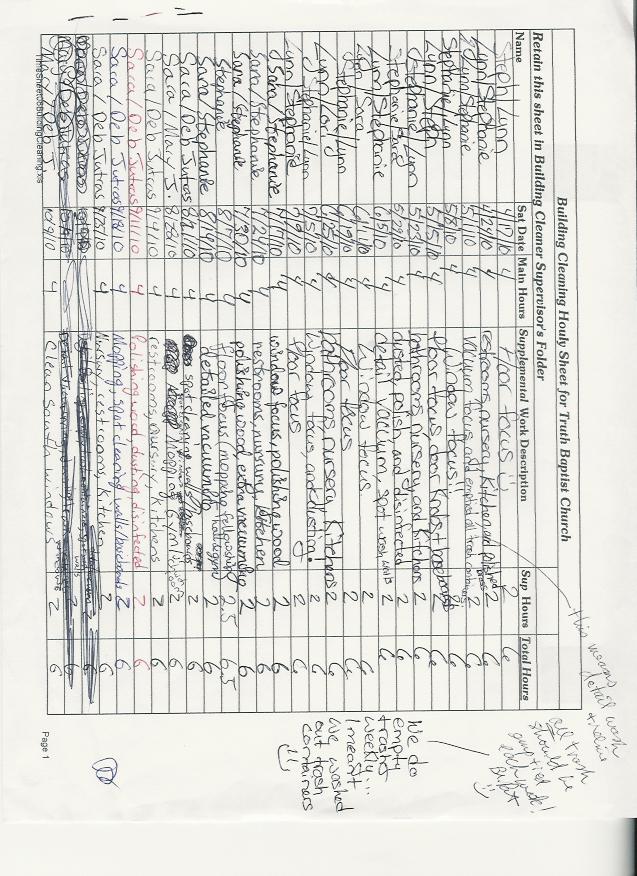 Building Cleaning Houly Sheet for Truth Baptist Church
Retain this sheet in Building Cleaner Supervisor's Folder
Name Sat Date Main Hours Supplemental Work Description Sup Hours Total Hours
Steph/Lynn 4/17/10 4 floor focus 2 6
Lynn/Stephanie 4/24/10 4 restrooms, nursery, kitchen, and polished 2 6
Lynn/Stephanie 5/1/10 4 vacuum focus and emptied all trash containers 2 6
Stephanie/Lynn 5/8/10 4 window focus!! 2 6
Lynn/Steph 5/15/10 4 floor focus, door knobs + 2 6
Stephanie/Lynn 5/22/10 4 bathrooms, nursery, and kitchens 2 6
Stephanie 5/29/10 4 dusted, polish, and disinfected 2 6
Lynn/Stephanie 6/5/10 4 detail vaccum, spot wash walls 2 6
Lynn/Sara 4 window focus 2 6
Stephanie/Lynn 6/19/10 4 floor focus 2 6
Lynn/Lori 4 bathrooms, nursery, kitchens 2 6
Stephanie/Lynn 4 window focus, and dusting! 2 6
Lynn/Stephanie 4 floor focus 2 6
Sara/Stephanie 7/17/10 4 window focus, polishing wood 2 6
Sara/Stephanie 7/24/10 4 restrooms, nursery, kitchen 2 6
Sara/Stephanie 7/30/10 4 polishing wood, extra vacuuming 2 6
Stephanie 4 floor focus mopping fellowship hall & gym 2.5 6.5
Sara/Stephanie 8/14/10 4 detailed vacuuming 2 6
Sara/Deb Jutras 8/21/10 4 spot cleaning walls/baseboards 2 6
Sara/Mary J. 8/28/10 4 Mopping Gym 2 6
Sara/Deb Jutras 9/4/10 4 restrooms, nursery, kitchens 2 6
Sara/Deb Jutras 9/11/10 4 Polishing wood, dusting, disinfected 2 6
Sara/Deb Jutras 9/18/10 4 Mopping, spot cleaning walls/baseboards 2 6
Sara/Deb Jutras 9/25/10 4 Nursery, restrooms, kitchen 2 6
Mary/Deb J 10/9/10 4 Clean Sanct. windows 2 6
Page 1
this means detail wash
all trash
should be
emptied
each week!
We do
empty
trash
weekly...
I meant
We washed
out trash
containers